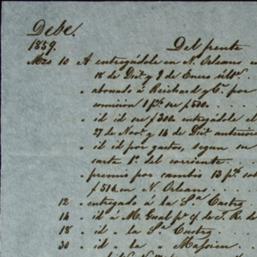 Debe.
1859. Del frente
Mzo 10 A entregádole en N. Orleans en
18 de Dic.e y 9 de Enero últ.o
" abonado á Reichard y C.a por
comision 1 p% en $500. . . .
" id id en $300 entregádole el
27 de Nov.e y 14 de Dic.e anteriores
" id id por gastos, segun su
carta 1.o del corriente. . . .
" premio por cambio 13 p% sob
$516. en N. Orleans. . . .
12 " entregado á la S.a Castro . .
14 " id á M. Gual p.r of. de J. R. de
18 " id " la S.a Castro . . . .
30 " id " la " Massien . . .